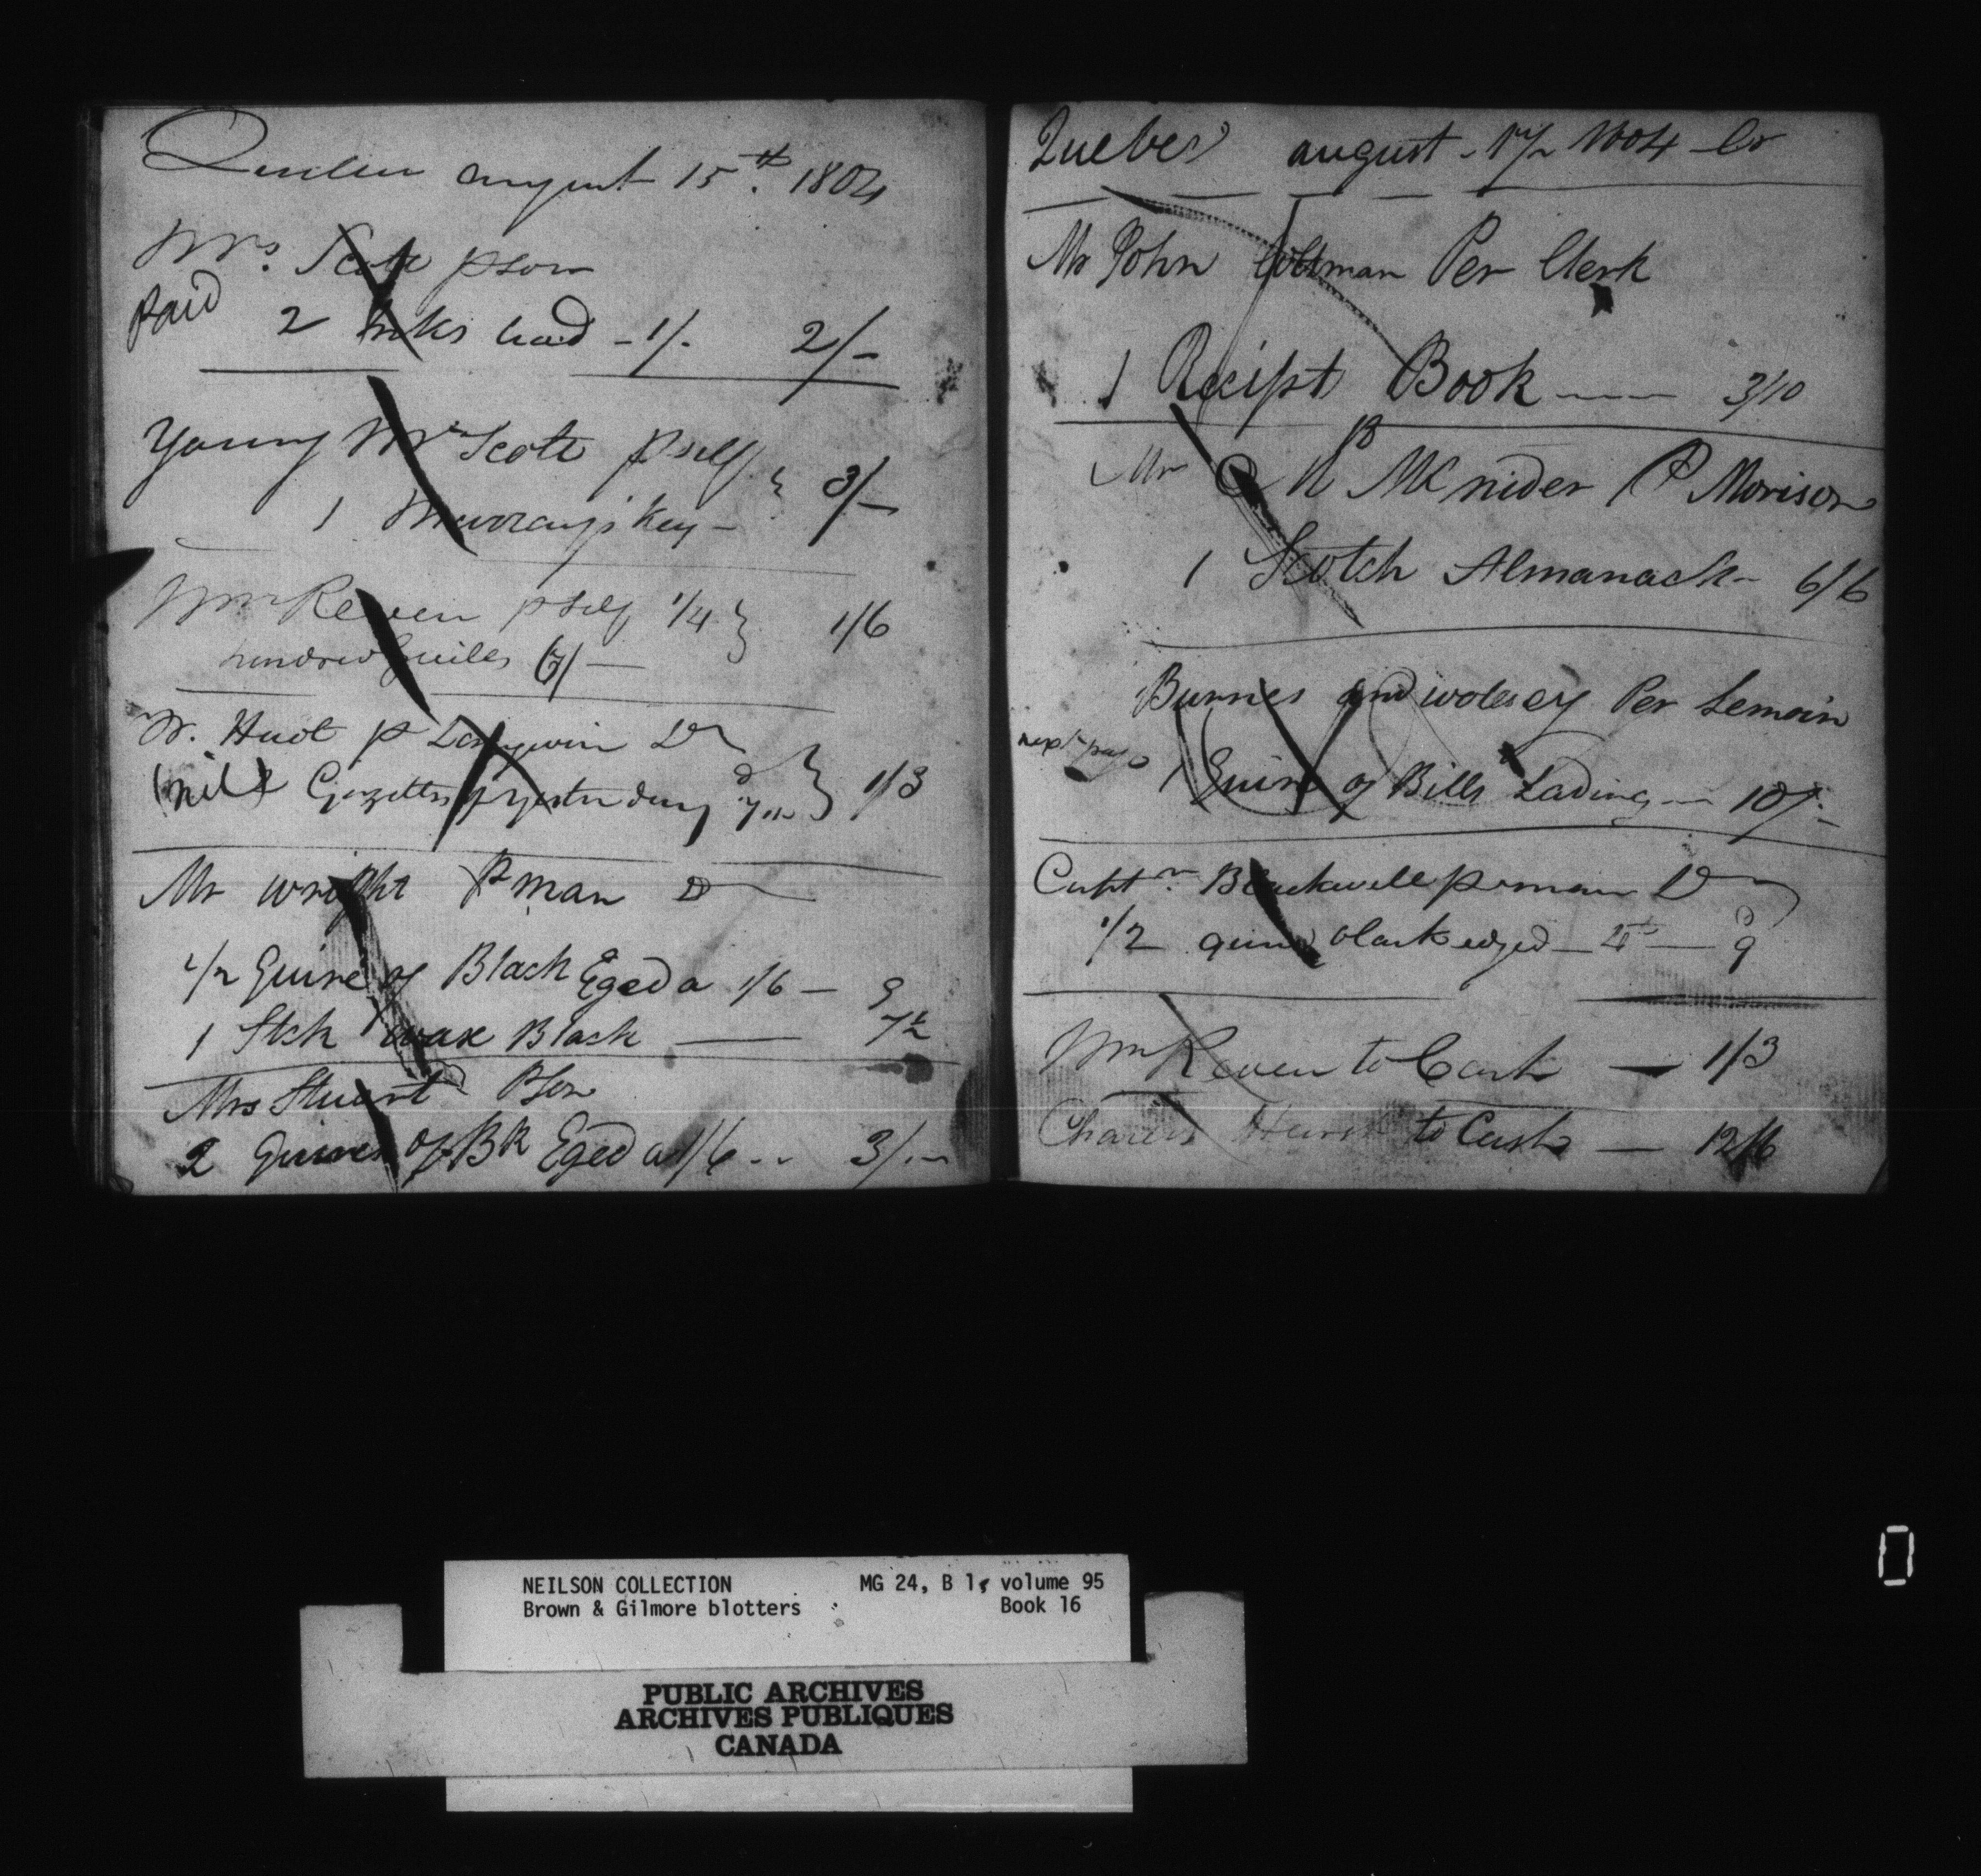 Quebec august 15th. 1804
Mrs. Scott pson
Paid
2 Inks 1/. 2/-
Young Mr Scott pself
1 Murray's Key - 3/-
Wm Reven pself 1/4 1/6
hundred Quills 6/-
W. Huot p Langevin Dr
(nil) Gazettes yesterday 1/3
Mr Wright P man Dr
1/2 Quire of Black Eged a 1/6 - 9
1 Stck wax Black 7½
Mrs Stuart Pson
2 Quires of Bk Eged a 1/6 .. 3/.-
Quebec august - 17 1804
Mr John Coltman Per Clerk
1 Reciept Book 3/10
Mr McNider P Morison
1 Scotch Almanack - 6/6
Burnes and wolesey Per Lemoin
next page
1 Quire of Bills Lading 10/-
Captn. Blackwell p man Dr
1/2 quire black edged 9
Wm Reven to Cash — 1/3
Charles Hurst to Cash — 12/6
NEILSON COLLECTION MG 24, B 1, volume 95
Brown & Gilmore blotters Book 16
PUBLIC ARCHIVES
ARCHIVES PUBLIQUES
CANADA